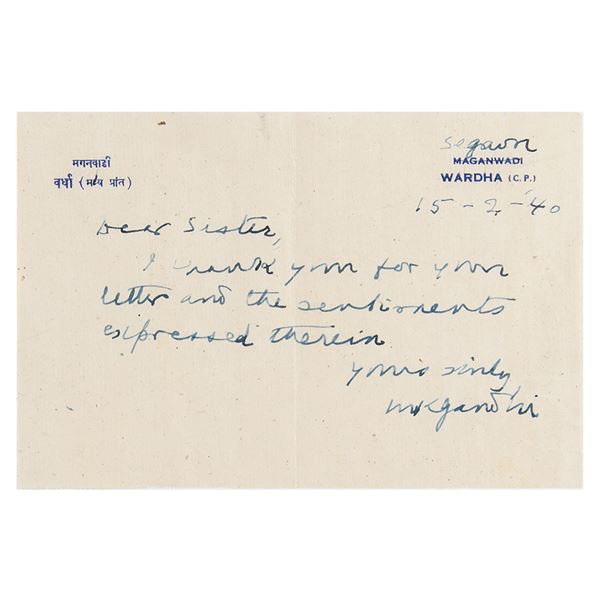 मगनवाडी
वर्धा (मध्य प्रांत)
Segaon
MAGANWADI
WARDHA (C.P.)
15-2-40
Dear Sister,
I thank you for your
letter and the sentiments
expressed therein
yours sinly
MKGandhi